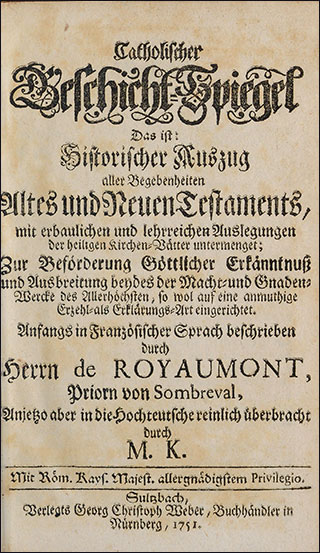 Catholischer
Geschicht-Spiegel
Das ist:
Historischer Auszug
aller Begebenheiten
Altes und Neuen Testaments,
mit erbaulichen und lehrreichen Auslegungen
der heiligen Kirchen-Vätter untermenget;
Zur Beförderung Göttlicher Erkänntnuß
und Ausbreitung beydes der Macht- und Gnaden-
Wercke des Allerhöchsten, so wol auf eine anmuthige
Erzehl- als Erklärungs-Art eingerichtet.
Anfangs in Französischer Sprach beschrieben
durch
Herrn de ROYAUMONT,
Priorn von Sombreval,
Anjetzo aber in die Hochteutsche reinlich überbracht
durch
M. K.
Mit Röm. Kays. Majest. allergnädigstem Privilegio.
Sultzbach,
Verlegts Georg Christoph Weber, Buchhändler in
Nürnberg, 1751.